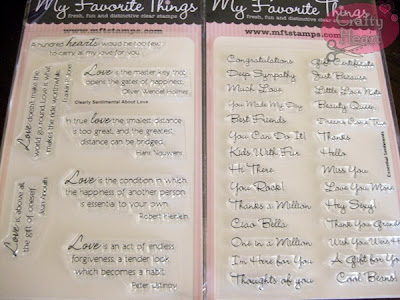 My Favorite Things
fresh, fun and distinctive clear stamps
www.mftstamps.com
A hundred hearts would be too few
to carry all my love for you.
Love is the master key that
opens the gates of happiness.
Oliver Wendell Holmes
Clearly Sentimental About Love
Love doesn't make the
world go round. Love is what
makes the ride worthwhile.
In true love the smallest distance
is too great, and the greatest
distance can be bridged.
Hans Nouwens
Love is the condition in which
the happiness of another person
is essential to your own.
Robert Heinlein
Love is above all
the gift of oneself
Jean Anouilh
Love is an act of endless
forgiveness, a tender look
which becomes a habit.
Peter Ustinov
My Favorite Things
fresh, fun and distinctive clear stamps
www.mftstamps.com
Congratulations
Deep Sympathy
Much Love
You Made My Day
Best Friends
You Can Do It!
Kids With Fur
Hi There
You Rock!
Thanks a Million
Ciao Bella
One in a Million
I'm Here for You
Thoughts of you
Gift Certificate
Just Because
Little Love Note
Beauty Queen
Dreams Come True
Thanks
Hello
Miss You
Love You More
Hey Sexy!
Thank You Friend
Wish You Were Here
A Gift for You
Cool Beans!
Essential Sentiments
Crafty
Heart